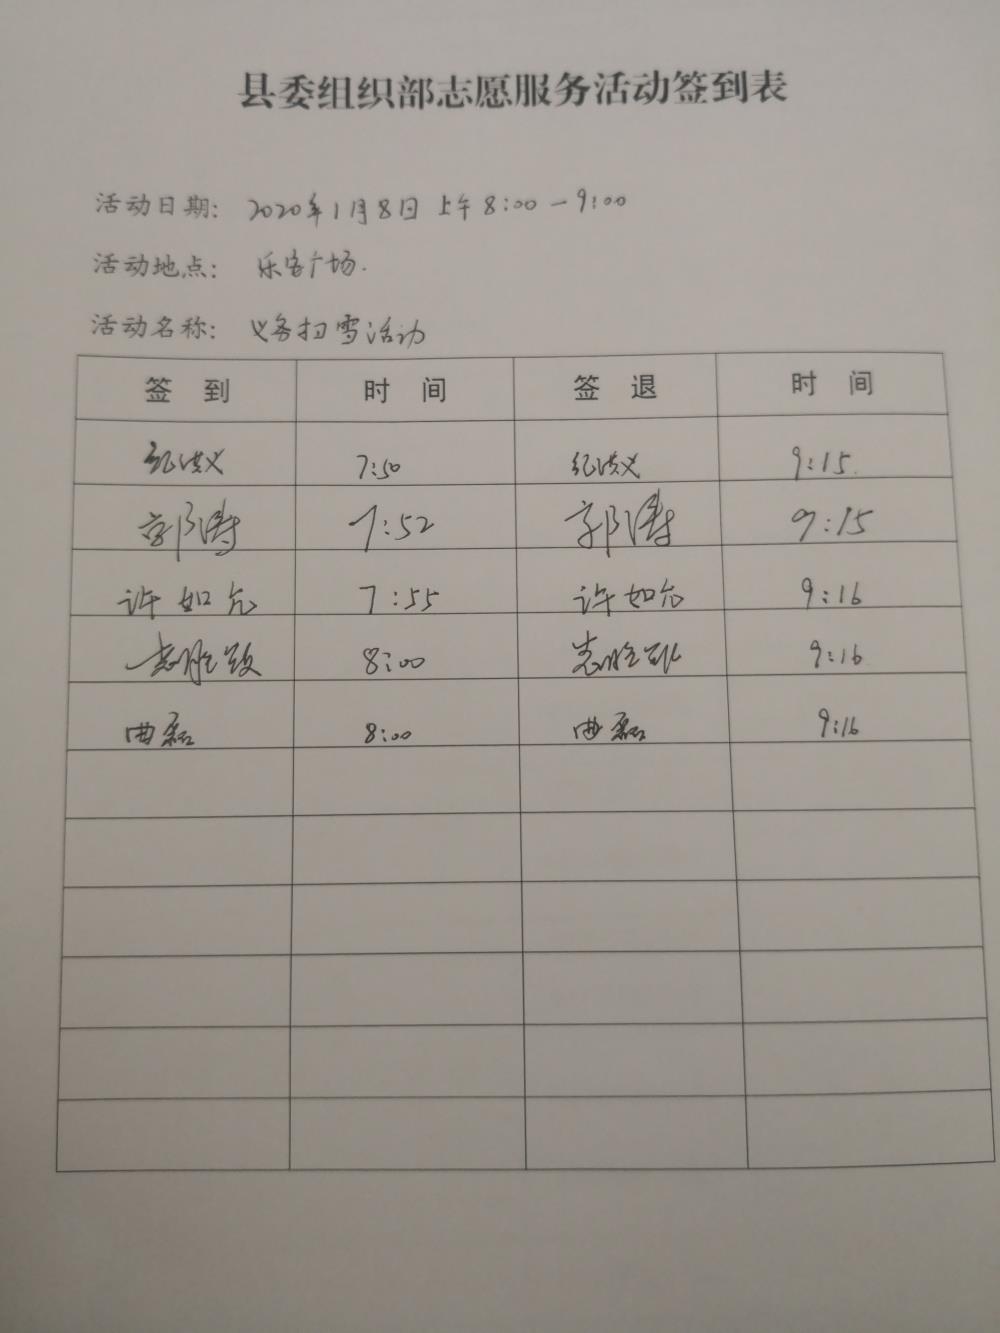 县委组织部志愿服务活动签到表
活动日期: 2020年1月8日上午8:00-9:00
活动地点: 乐客广场.
活动名称: 义务扫雪活动
签到 时间 签退 时间
纪洪义 7:50 纪洪义 9:15
郭涛 7:52 郭涛 9:15
许如允 7:55 许如允 9:16
8:00 9:16
曲磊 8:00 曲磊 9:16